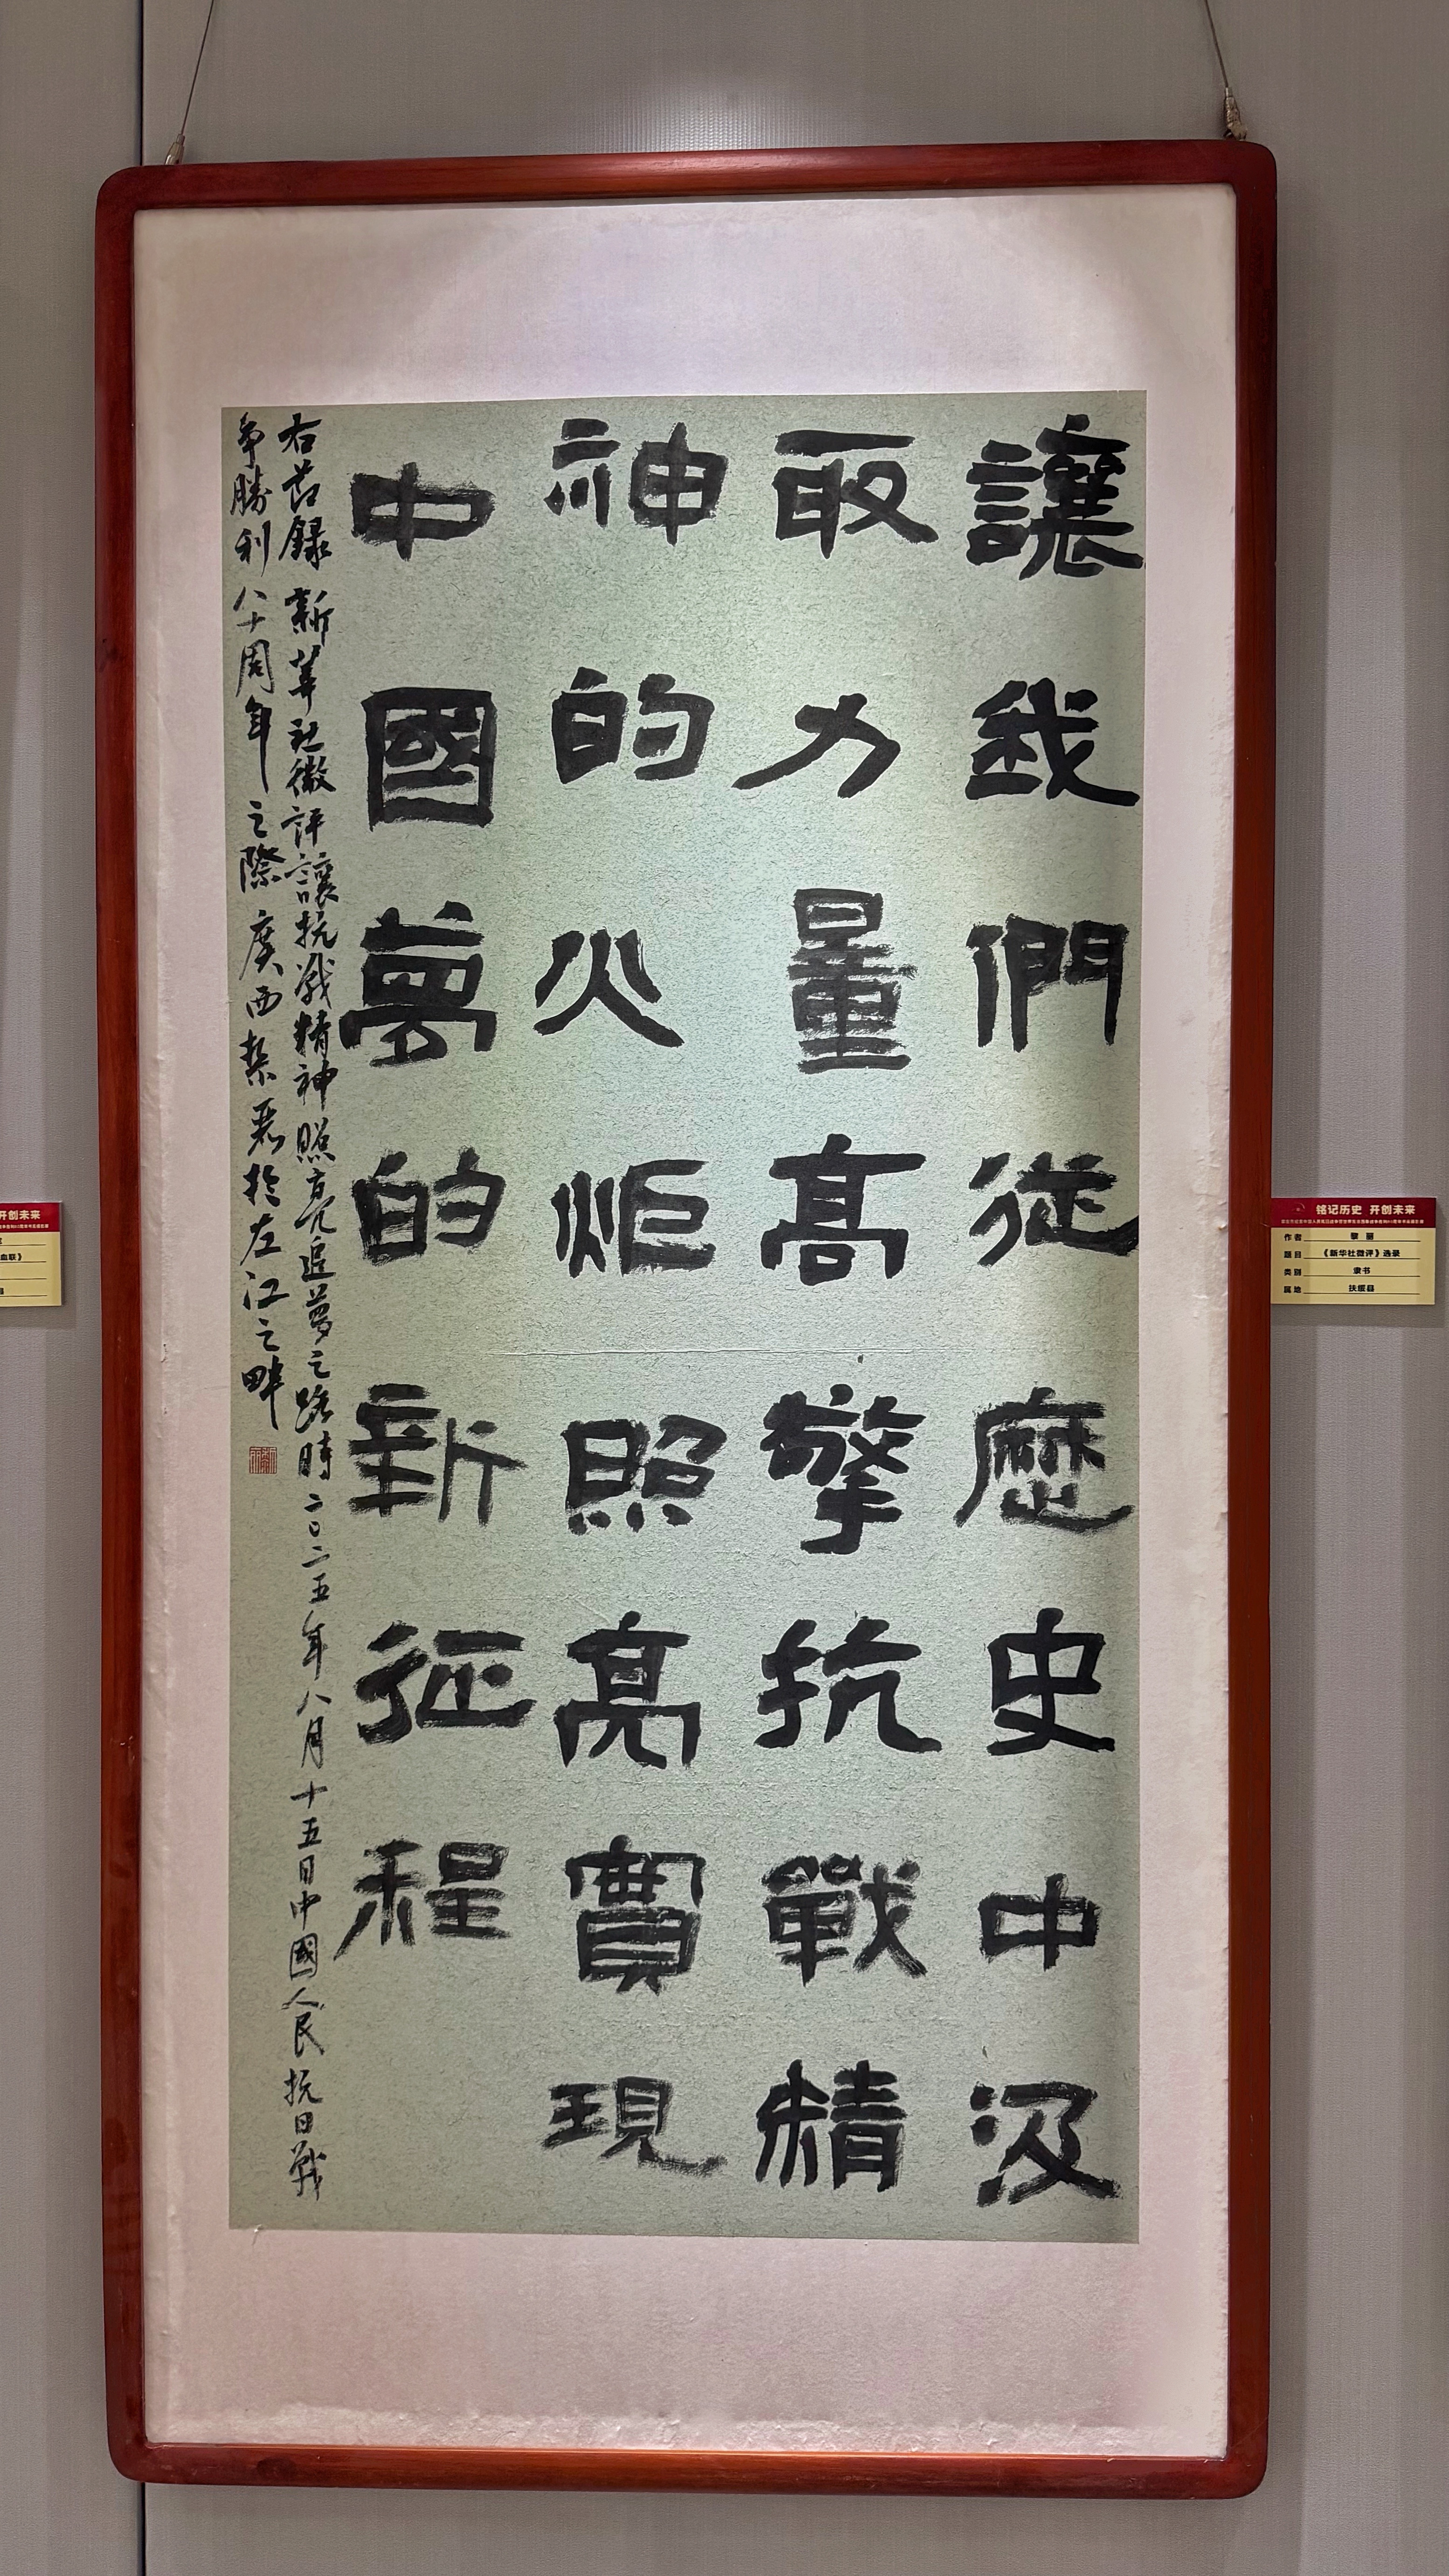 讓我們從歷史中汲
取力量高擎抗戰精
神的火炬照亮實現
中國夢的新征程
右節錄新華社微評讓抗戰精神照亮追夢之路時二〇二五年八月十五日中國人民抗日戰
爭勝利八十周年之際廣西黎丽於左江之畔
铭记历史 开创未来
作者 黎丽
题目 《新华社微评》选录
类别 隶书
属地 扶绥县
开创未来
血联》